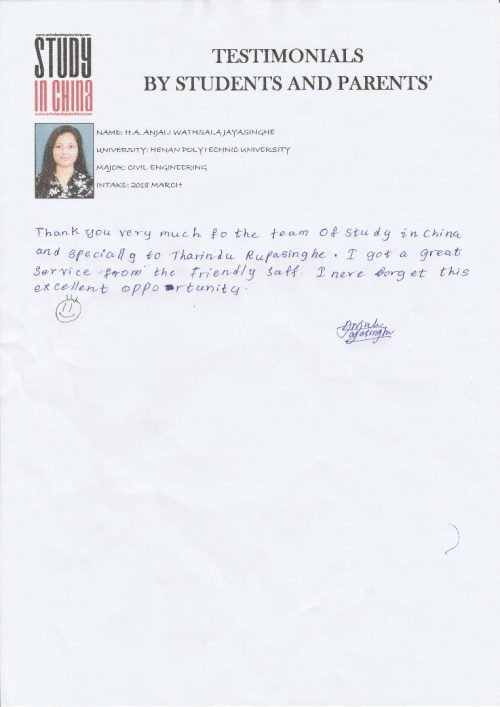 www.scholarshipsinchina.com
STUDY
IN CHINA
www.scholarshipsinchina.com
TESTIMONIALS
BY STUDENTS AND PARENTS'
NAME: H.A. ANJALI WATHSALA JAYASINGHE
UNIVERSITY: HENAN POLYTECHNIC UNIVERSITY
MAJOR: CIVIL ENGINEERING
INTAKE: 2018 MARCH
Thank you very much fo the team of study in China
and specially to Tharindu Rupasinghe. I got a great
Service from the friendly saff. I neve forget this
excellent opportunity.
Anjali
Jayasinghe